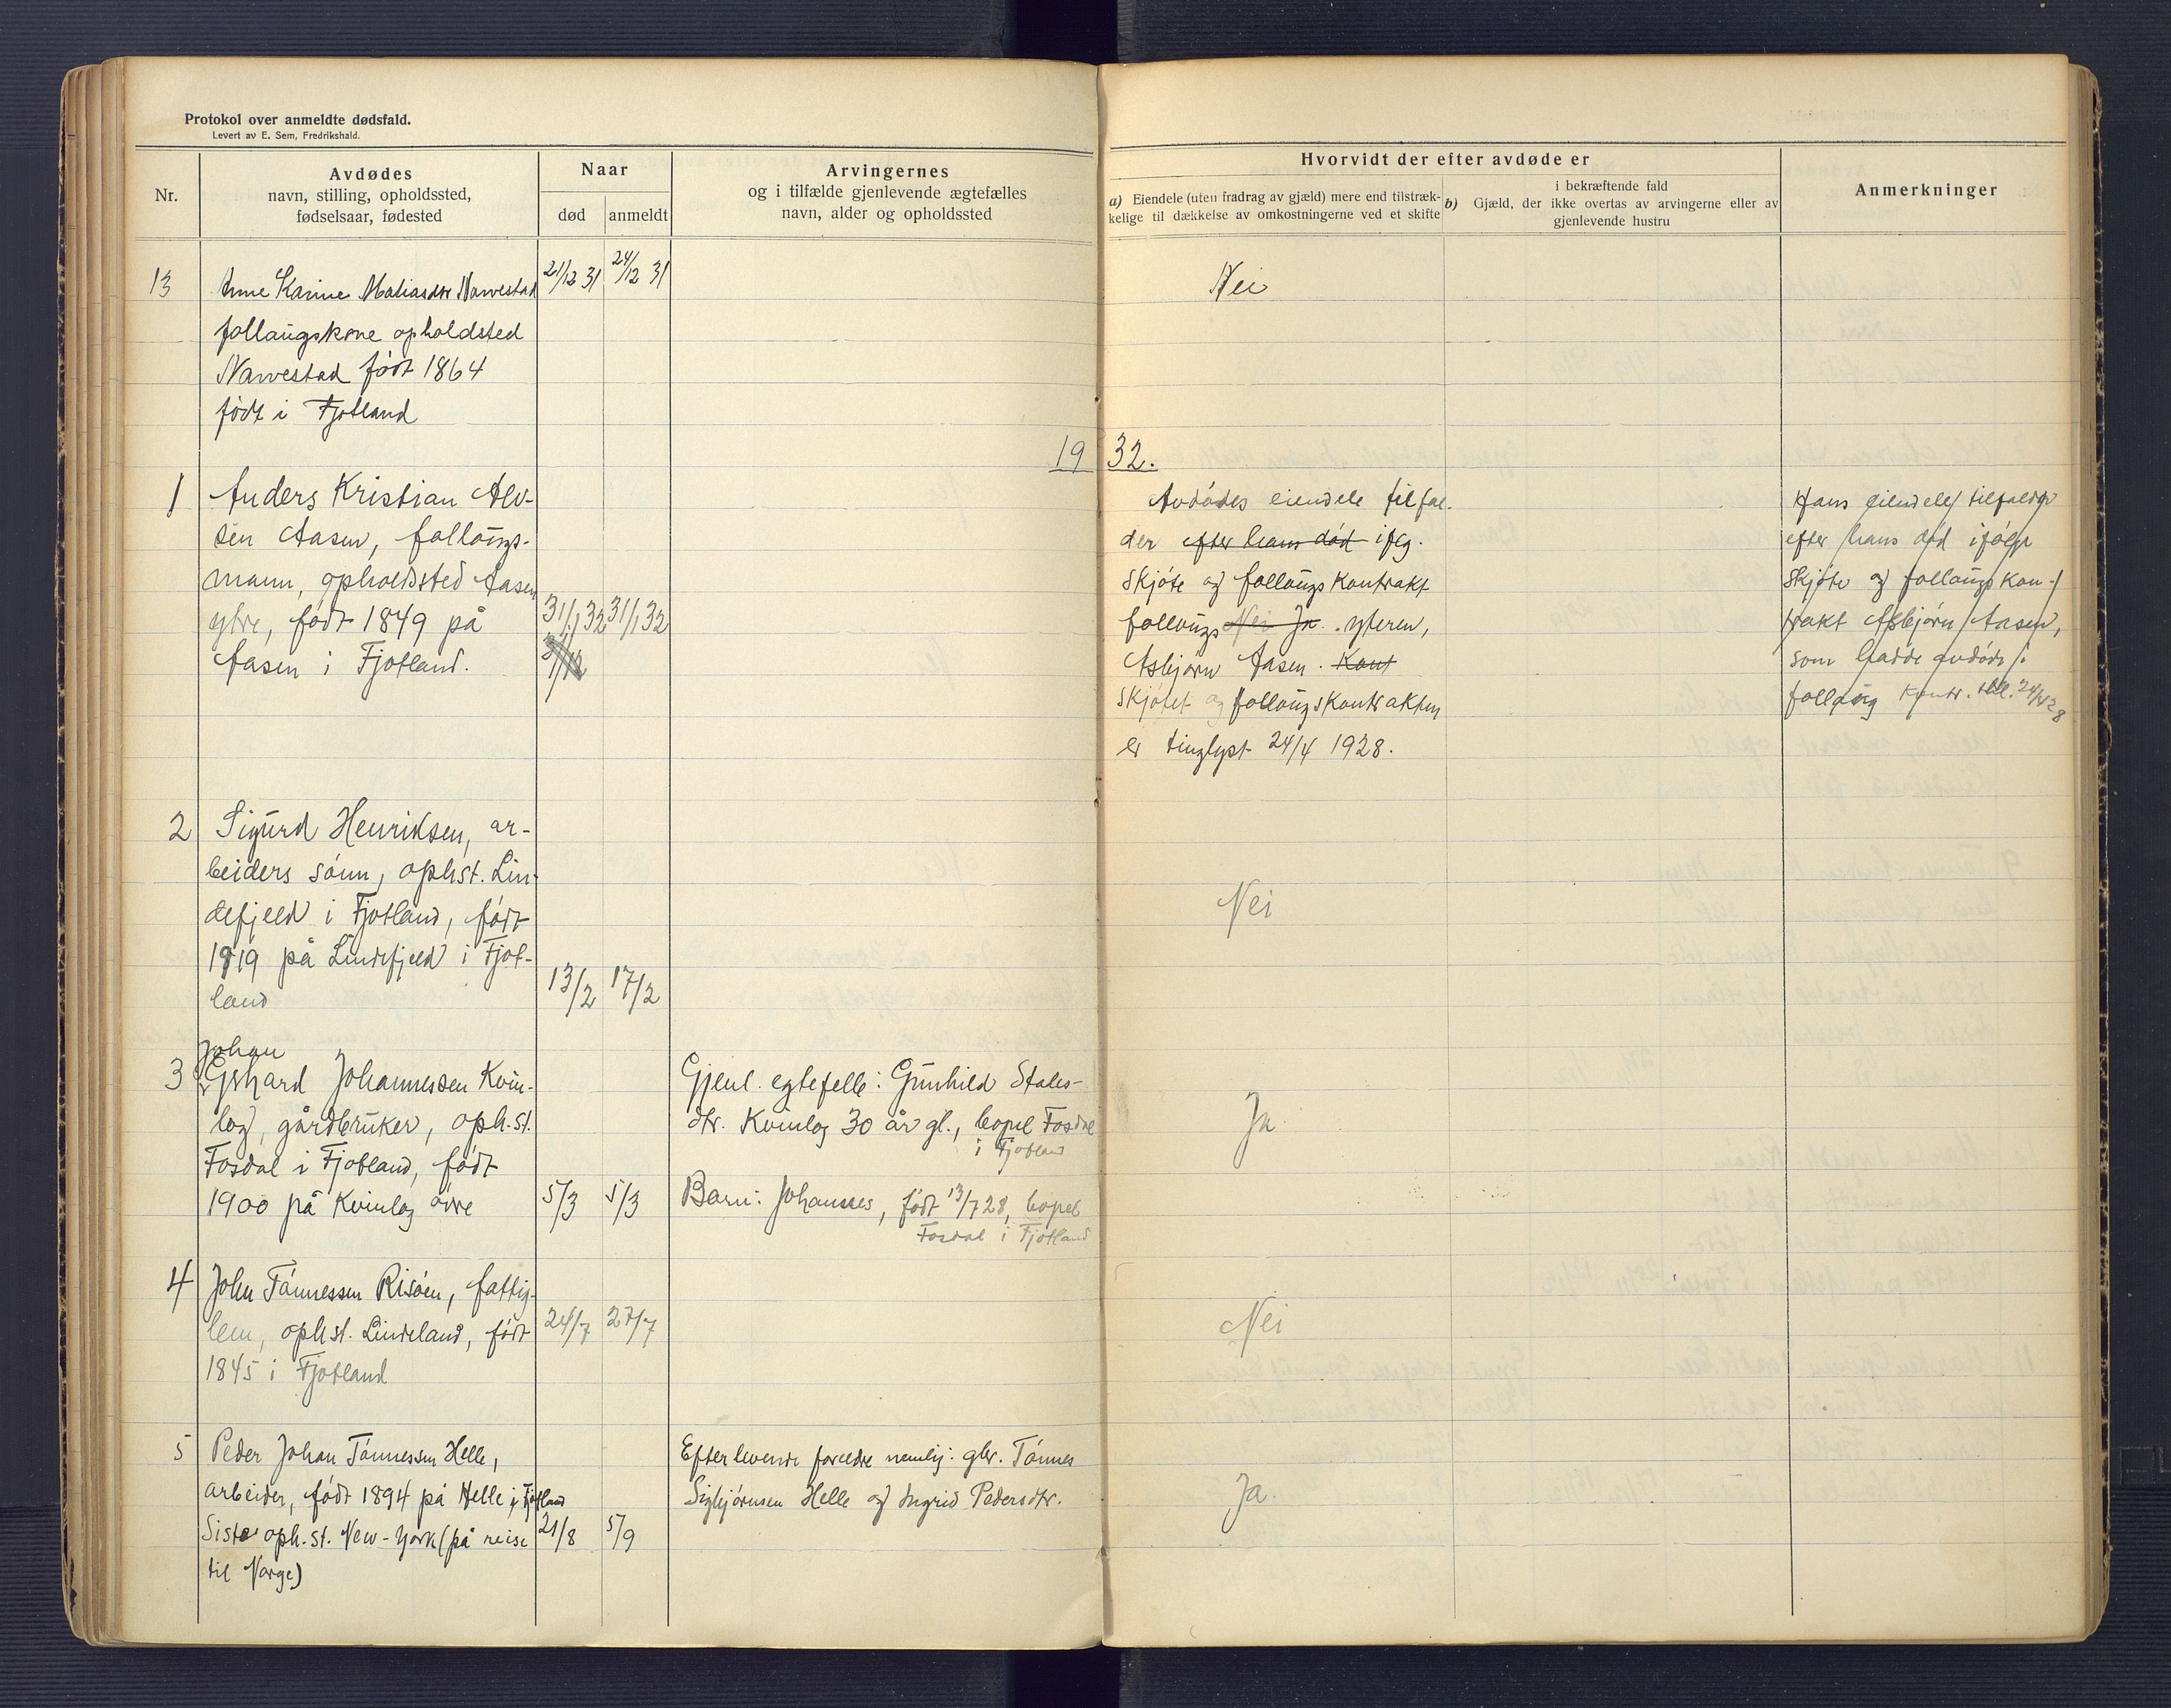 Protokol over anmeldte dødsfald.
Levert av E. Sem, Fredrikshald.
Nr.
Avdødes
navn, stilling, opholdssted,
fødselsaar, fødested
Naar
død
anmeldt
Arvingernes
og i tilfælde gjenlevende ægtefælles
navn, alder og opholdssted
Hvorvidt der efter avdøde er
a) Eiendele (uten fradrag av gjæld) mere end tilstræk-
kelige til dækkelse av omkostningerne ved et skifte
i bekræftende fald
b) Gjæld, der ikke overtas av arvingerne eller av
gjenlevende hustru
Anmerkninger
13
Anne Karine Matiasdtr Narvestad
follaugskone opholdsted
Narvestad født 1864
født i Fjotland
21/12 31
24/12 31
Nei
1932.
1
Anders Kristian Alv-
sen Aasen, follaugs-
mann, opholdssted Aasen
ytre, født 1849 på
Aasen i Fjotland.
31/1 32
31/1 32
Avdødes eiendele tilfal-
der efter hans død iflg.
skjøte og follaugskontrakt
follaugs Nei Ja yteren,
Asbjørn Aasen. Kont
skjøtet og follaugskontrakten
er tinglyst 24/4 1928.
Hans eiendele tilfalder
efter hans død ifølge
skjøte og follaugskon-
trakt Asbjørn Aasen,
som hadde avdøde i
follaug Kontr. tbl. 24/4 28
2
Sigurd Henriksen, ar-
beiders sønn, ophst. Lin-
defjeld i Fjotland, født
1919 på Lindefjeld i Fjot-
land
13/2
17/2
Nei
3
Johan
Gerhard Johannessen Kvin-
log, gårdbruker, oph.st.
Fosdal i Fjotland, født
1900 på Kvinlog øvre
5/3
5/3
Gjenl. egtefelle: Gunhild Stales-
dtr. Kvinlog 30 år gl., bopel Fosdal
i Fjotland
Barn: Johannes, født 13/7 28, bopel
Fosdal i Fjotland
Ja
4
John Tønnessen Risøen, fattig-
lem, ophst. Lindeland, født
1845 i Fjotland
24/7
27/7
Nei
5
Peder Johan Tønnessen Helle,
arbeider, født 1894 på Helle i Fjotland
Siste oph.st. New-York (på reise
til Norge)
21/8
5/9
Efterlevende foreldre nemlig: gbr. Tønnes
Sigbjørnsen Helle og Ingrid Pedersdtr.
Ja